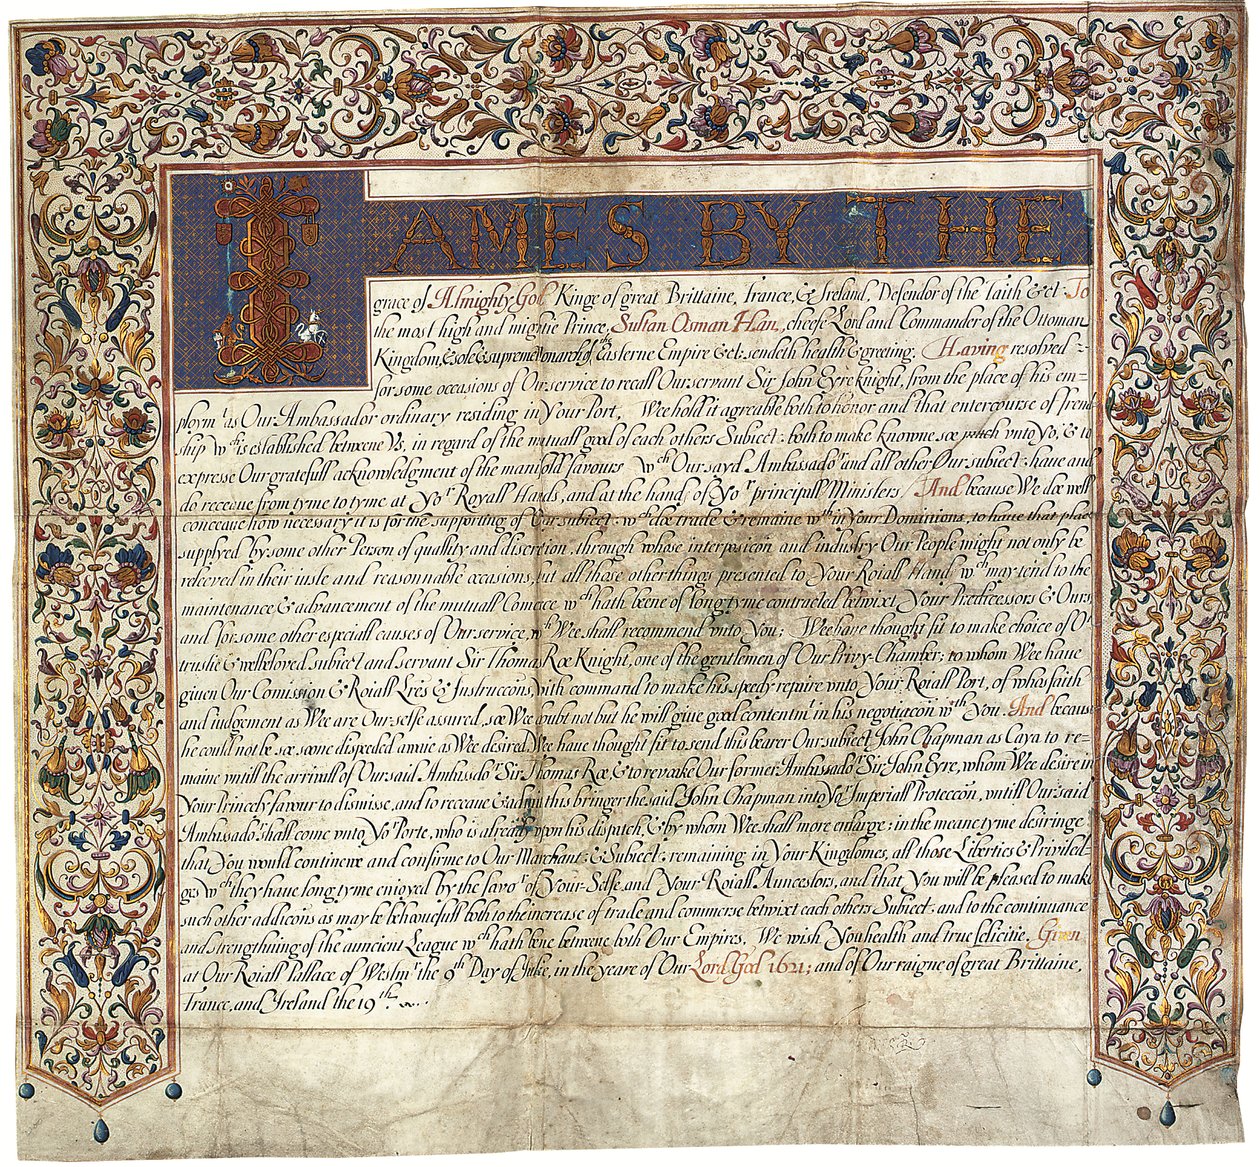 IAMES BY THE
grace of Almighty God, Kinge of great Brittaine, France, & Ireland, Defendor of the faith &ct. To
the most high and mightie Prince, Sultan Osman Han, cheefe Lord and Commander of the Ottoman
Kingdom, & sole & supreme Monarch of the Easterne Empire &ct. sendeth health & greeting. Having resolved
for some occasions of Our service to recall Our servant Sir John Eyre knight, from the place of his em-
ploymt as Our Ambassador ordinary residing in Your Port, Wee hold it agreable both to honor and that entercourse of frend-
ship wch is established betweene Vs, in regard of the mutuall good of each others Subiect: both to make knowne soe much vnto Yo, & to
expresse Our gratefull acknowledgment of the manifold favours wch Our sayd Ambassador and all other Our subiect: haue and
do receaue from tyme to tyme at Yor Royall Hands, and at the hands of Yor principall Ministers / And because We doe well
conceaue how necessary it is for the supporting of Our subiect: wch doe trade & remaine wth in Your Dominions, to haue that place
supplyed by some other Person of quallity and discretion, through whose interposicon and industry Our People might not only be
releeved in their iuste and reasonnable occasions, but all those other things presented to Your Roiall Hand wch may tend to the
maintenance & advancement of the mutuall Comerce wch hath beene of long tyme contracted betwixt Your Predecessors & Ours
and for some other especiall causes of Our service, wch Wee shall recommend vnto You; Wee haue thought fit to make choice of Or
trustie & welbeloved subiect and servant Sir Thomas Roe Knight, one of the gentlemen of Our Privy-Chamber; to whom Wee haue
giuen Our Comission & Roiall Lres & Instruccons, with command to make his speedy repaire vnto Your Roiall Port, of whose faith
and iudgement as Wee are Our selfe assured, soe Wee doubt not but he will giue good contentmt in his negotiacon wth You. And because
he could not be soe soone dispeeded awaie as Wee desired, Wee haue thought fit to send this bearer Our subiect John Chapman as Caya to re-
maine vntill the arrivall of Our said Ambassador Sir Thomas Roe & to revoake Our former Ambassador Sir John Eyre, whom Wee desire in
Your Princely favour to dismisse, and to receaue & admitt this bringer the said John Chapman into Yor Imperiall Proteccon, vntill Our said
Ambassador shall come vnto Yor Porte, who is already vpon his dispatch, & by whom Wee shall more enlarge: in the meane tyme desiringe
that You would continewe and confirme to Our Marchant: & Subiect: remaining in Your Kingdomes, all those Liberties & Priviled-
ges wch they haue long tyme enioyed by the favor of Your Selfe, and Your Roiall Auncestors, and that You will be pleased to make
such other addicons as may be behouefull both to the increase of trade and commerse betwixt each others Subiect: and to the continuance
and strengthning of the auncient League wch hath bene betwene both Our Empires, We wish You health and true felicitie. Given
at Our Roiall Pallace of Westmr the 9th Day of June, in the yeare of Our Lord God 1621; and of Our raigne of great Brittaine,
France, and Ireland the 19th